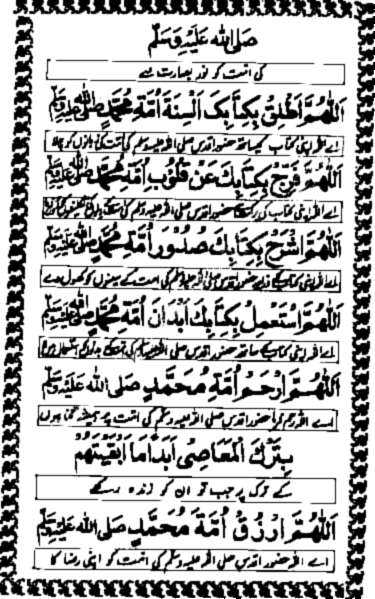 صَلَّى اللّٰهُ عَلَيْهِ وَسَلَّمَ
کی امت کو نور بصارت سے
اَللّٰهُمَّ اَطْلِقْ بِكِتَابِكَ اَلْسِنَةَ اُمَّةِ مُحَمَّدٍ صلى الله عليه وسلم
اے اللہ اپنی کتاب کیساتھ حضور اقدس صلی اللہ علیہ وسلم کی امت کی زبانوں کو چلا
اَللّٰهُمَّ فَرِّجْ بِكِتَابِكَ عَنْ قُلُوْبِ اُمَّةِ مُحَمَّدٍ صلى الله عليه وسلم
اے اللہ اپنی کتاب کی برکت حضور اقدس صلی اللہ علیہ وسلم کی امت کے دلوں کی
اَللّٰهُمَّ اشْرَحْ بِكِتَابِكَ صُدُوْرَ اُمَّةِ مُحَمَّدٍ صلى الله عليه وسلم
اے اللہ اپنی کتاب کے حضور اقدس صلی اللہ علیہ وسلم کی امت کے سینوں کو کھول دے
اَللّٰهُمَّ اسْتَعْمِلْ بِكِتَابِكَ اَبْدَانَ اُمَّةِ مُحَمَّدٍ صلى الله عليه وسلم
اے اللہ اپنی کتاب کے ساتھ حضور اقدس صلی اللہ علیہ وسلم کی امت کے بدنوں کو استعمال
اَللّٰهُمَّ ارْحَمْ اُمَّةَ مُحَمَّدٍ صَلَّى اللّٰهُ عَلَيْهِ وَسَلَّمَ
اے اللہ رحم کر حضور اقدس صلی اللہ علیہ وسلم کی امت پر ہمیشہ گناہوں
بِتَرْكِ الْمَعَاصِىْ اَبَدًا مَا اَبْقَيْتَهُمْ
کے ترک پر جب تو ان کو زندہ رکھے
اَللّٰهُمَّ ارْزُقْ اُمَّةَ مُحَمَّدٍ صَلَّى اللّٰهُ عَلَيْهِ وَسَلَّمَ
اے اللہ حضور اقدس صلی اللہ علیہ وسلم کی امت کو اپنی رضا کا